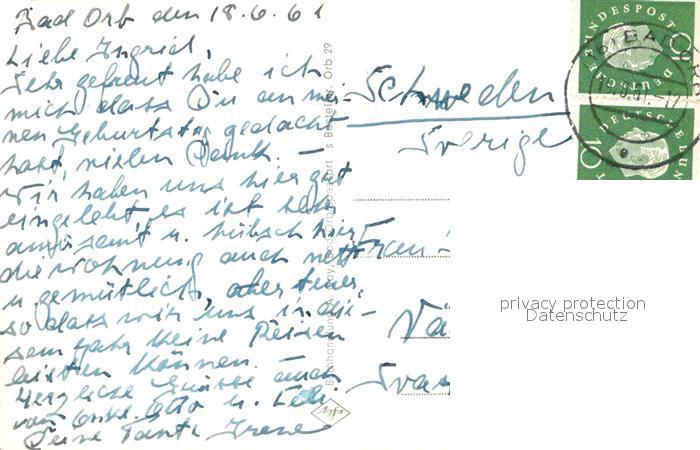 Bad Orb den 18.6.61
Liebe Ingrid,
Sehr gefreut habe ich
mich dass Du an mei-
nen Geburtstag gedacht
hast, vielen Dank. —
Wir haben uns hier gut
eingelebt, es ist sehr
amüsant u. hübsch hier
die Wohnung auch nett
u. gemütlich, aber teuer,
so dass wir uns in die-
sem Jahr keine Reisen
leisten können. —
Herzliche Grüsse auch
von Onkel Otto u.
Deine Tante Irene
Schweden
Sverige
Frau
Orb 29
DEUTSCHE BUNDESPOST
10
DEUTSCHE BUNDESPOST
10
privacy protection
Datenschutz
Agfa